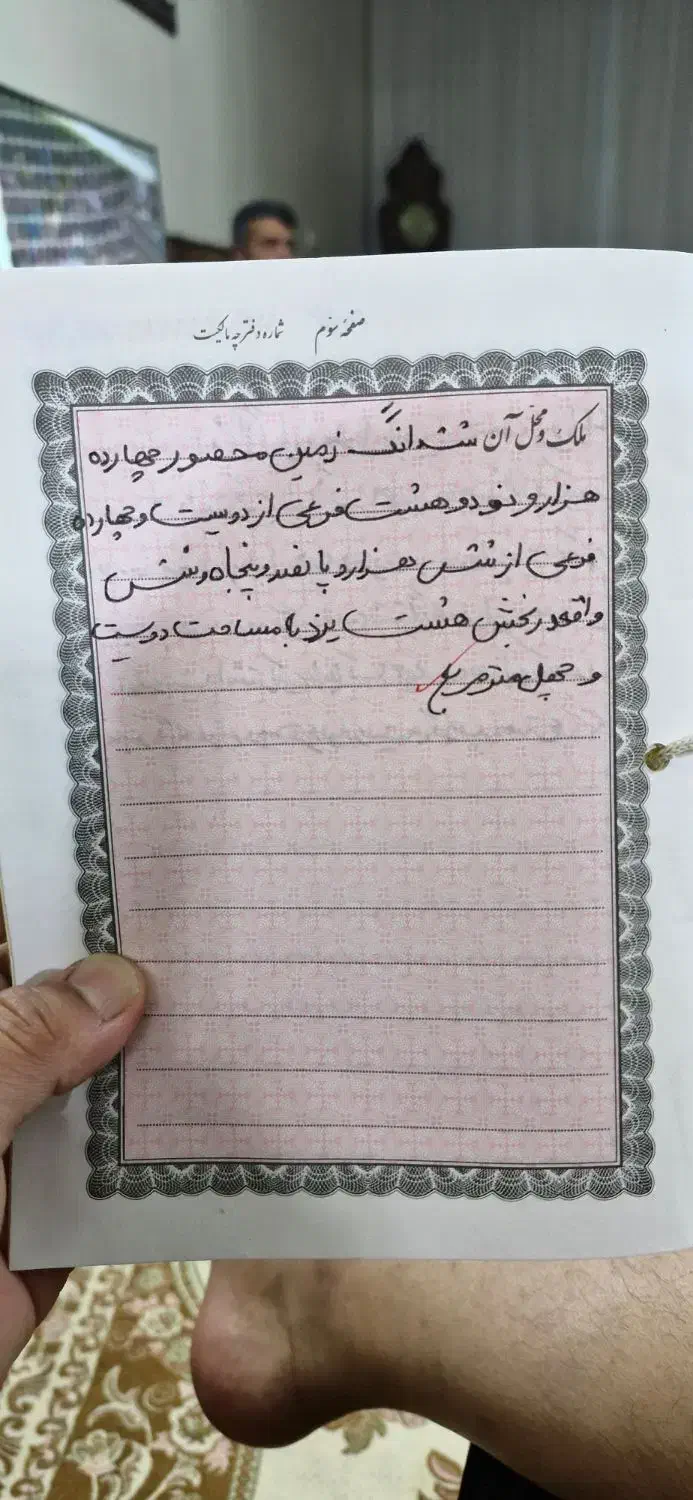 صفحهٔ سوم شماره دفترچه مالکیت
ملک و محل آن ششدانگ زمین محصور چهارده
هزار و نود و هشت فرعی از دویست و چهارده
فرعی از شش هزار و پانصد و پنجاه و شش
واقعدر بخش هشت یزد با مساحت دویست
و چهل متر مربع